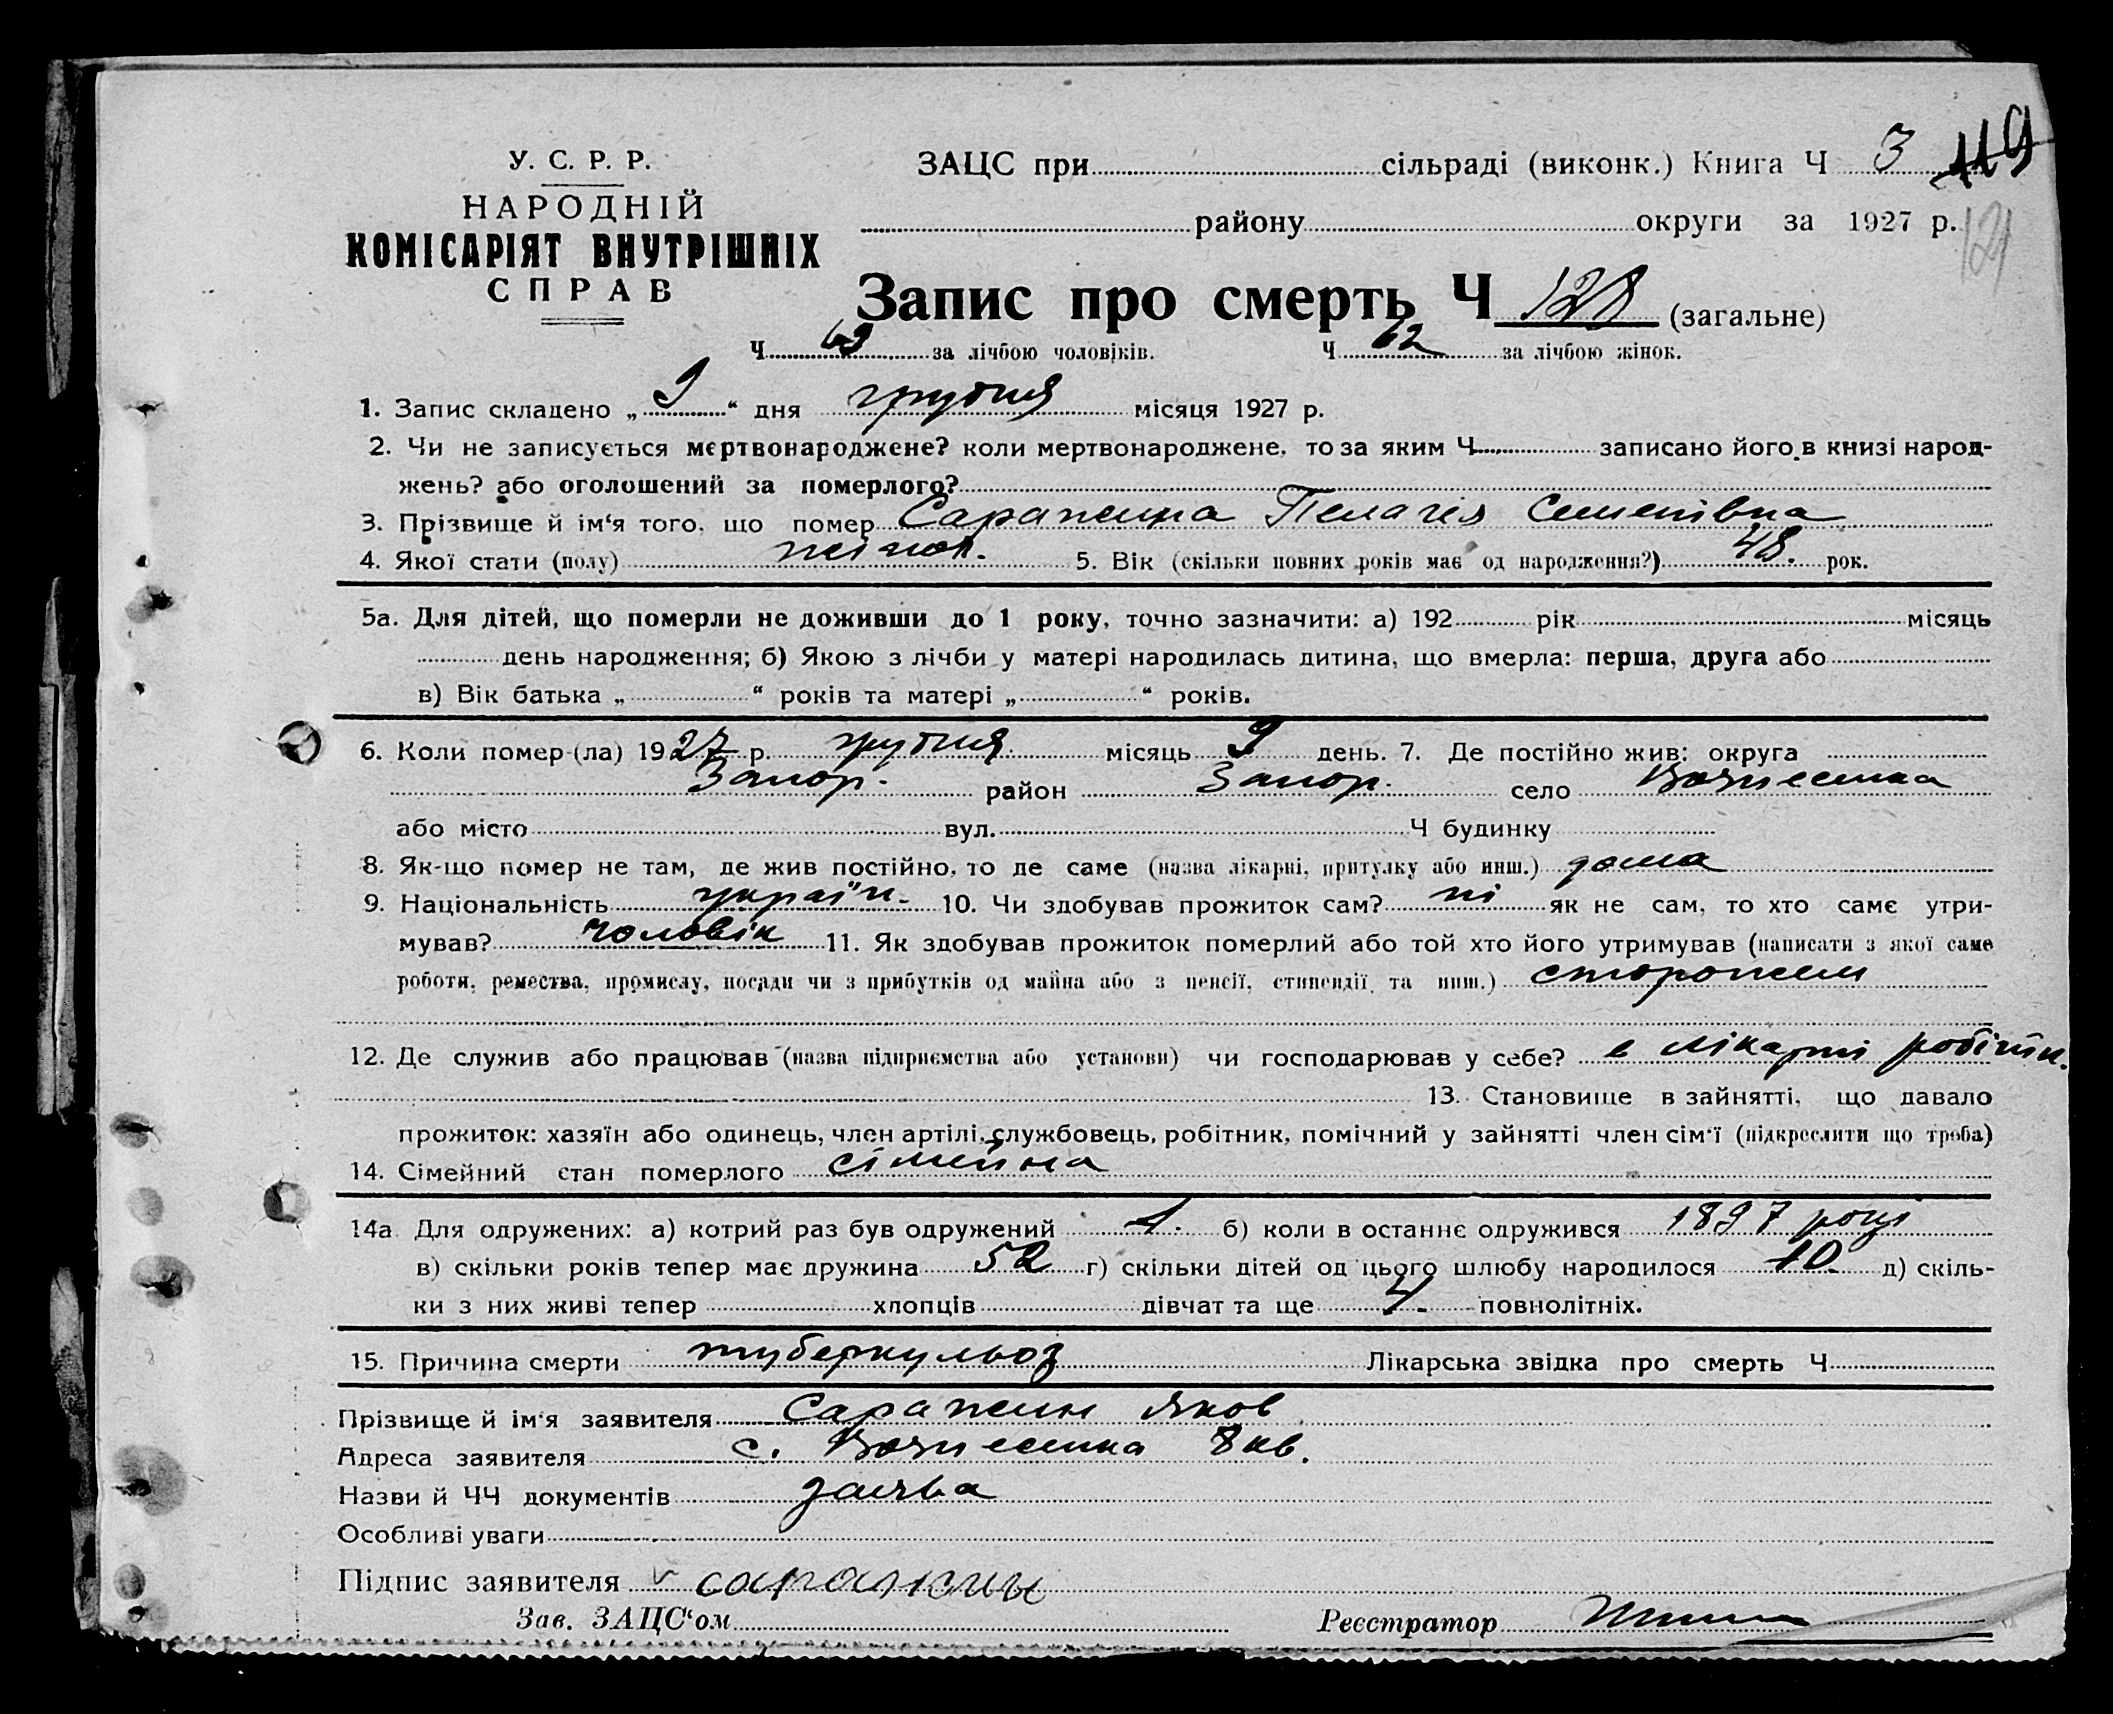 У. С. Р. Р.
НАРОДНІЙ
КОМІСАРІЯТ ВНУТРІШНІХ
СПРАВ
ЗАЦС при сільраді (виконк.) Книга Ч 3 119
району округи за 1927 р. 121
Запис про смерть Ч 128 (загальне)
Ч за лічбою чоловіків. Ч 62 за лічбою жінок.
1. Запис складено „ 9 “ дня грудня місяця 1927 р.
2. Чи не записується мертвонароджене? коли мертвонароджене, то за яким Ч записано його в книзі народ-
жень? або оголошений за померлого?
3. Прізвище й ім‘я того, що помер Саражина Пелагея Семенівна
4. Якої стати (полу) жіноч. 5. Вік (скільки повних років має од народження?) 48. рок.
5а. Для дітей, що померли не доживши до 1 року, точно зазначити: а) 192 рік місяць
день народження; б) Якою з лічби у матері народилась дитина, що вмерла: перша, друга або
в) Вік батька „ “ років та матері „ “ років.
6. Коли помер (ла) 1927 р. грудня місяць 9 день. 7. Де постійно жив: округа
Запор. район Запор. село Вознесенка
або місто вул. Ч будинку
8. Як-що помер не там, де жив постійно, то де саме (назва лікарні, притулку або инш.) дома
9. Національність україн. 10. Чи здобував прожиток сам? ні як не сам, то хто саме утри-
мував? чоловік 11. Як здобував прожиток померлий або той хто його утримував (написати з якої саме
роботи, ремества, промислу, посади чи з прибутків од майна або з пенсії, стипендії та инш.) сторожем
12. Де служив або працював (назва підприємства або установи) чи господарював у себе? в лікарні робітн.
13. Становище в зайнятті, що давало
прожиток: хазяїн або одинець, член артілі, службовець, робітник, помічний у зайнятті член сім‘ї (підкреслити що троба)
14. Сімейний стан померлого сімейна
14а. Для одружених: а) котрий раз був одружений 1. б) коли в останнє одружився 1897 році
в) скільки років тепер має дружина 52 г) скільки дітей од цього шлюбу народилося 10. д) скіль-
ки з них живі тепер хлопців дівчат та ще 4. повнолітніх.
15. Причина смерти туберкульоз Лікарська звідка про смерть Ч
Прізвище й ім‘я заявителя Саражин Яков
Адреса заявителя с. Вознесенка 8 кв.
Назви й ЧЧ документів заява
Особливі уваги
Підпис заявителя саражины
Зав. ЗАЦС‘ом Реєстратор